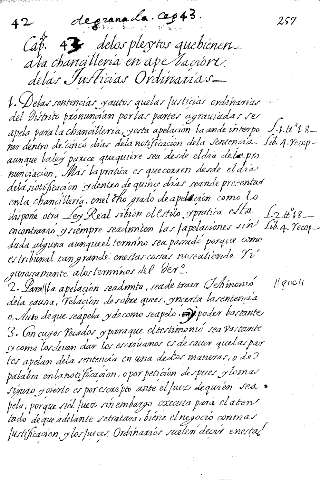 42 de granada. cap 43. 257
Cap. 43 de los pleytos que bienen
a la chançilleria en apelaçion
de las Justicias Ordinarias
1. De las sentencias, y autos que las Justicias ordinarias
del distrito pronuncian por las partes agraviadas se
apela para la chançilleria, y esta apelaçion la an de interpo
ner dentro de cinco dias de la notificaçion de la sentencia
aunque la ley parece que quiere sea desde el dia de la pro
nunciaçion, Mas la pratica es que corren desde el dia
de la notificaçion y dentro de quince dias se an de presentar
en la chançilleria, en el grado de apelaçion como lo
dispone otra Ley Real si bien el estilo, y pratica esta
en contrario, y siempre se admiten las apelaciones sin
duda alguna aunque el termino sea pasado porque como
es tribunal tan grande en estas cosas no se atiende
a los terminos del
2. Para la apelaçion se a de traer testimonio
de la causa, relaçion de sobre que es, y inserta la sentencia
o Auto de que se apela, y de como se apelo, y poder bastante
3. Con cuyos recados, y para que el testimonio sea bastante
y como los an de dar los escrivanos es de saver que las par
tes apelan de la sentencia en una de dos maneras, o de
palabra en la notificaçion, o por peticion despues, y lo mas
siguro, y cierto es por escripto ante el Juez de quien se a
pela, porque si el Juez sin embargo excecuta para el aten
tado de que adelante se tratara, biene el negoçio con mas
justificaçion, y los jueces Ordinarios suelen deçir en estas